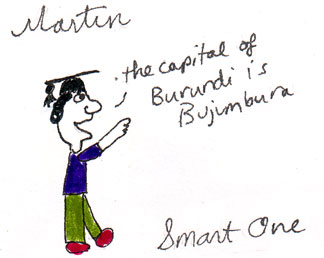 Martin
the capital of
Burundi is
Bujimbura
Smart One